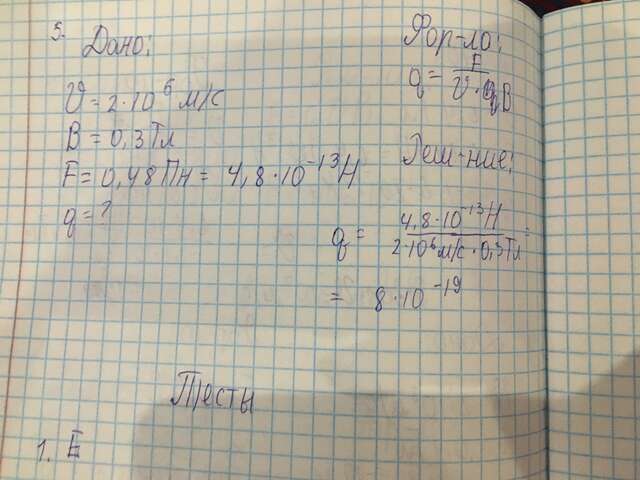 5. Дано:
V = 2·10⁶ м/с
B = 0,3 Тл
F = 0,48 Пн = 4,8·10⁻¹³ Н
q = ?
Фор-ло:
q = F / V · B
Реш-ние:
q = 4,8·10⁻¹³ Н / 2·10⁶ м/с · 0,3 Тл =
= 8·10⁻¹⁹
Тесты
1. E